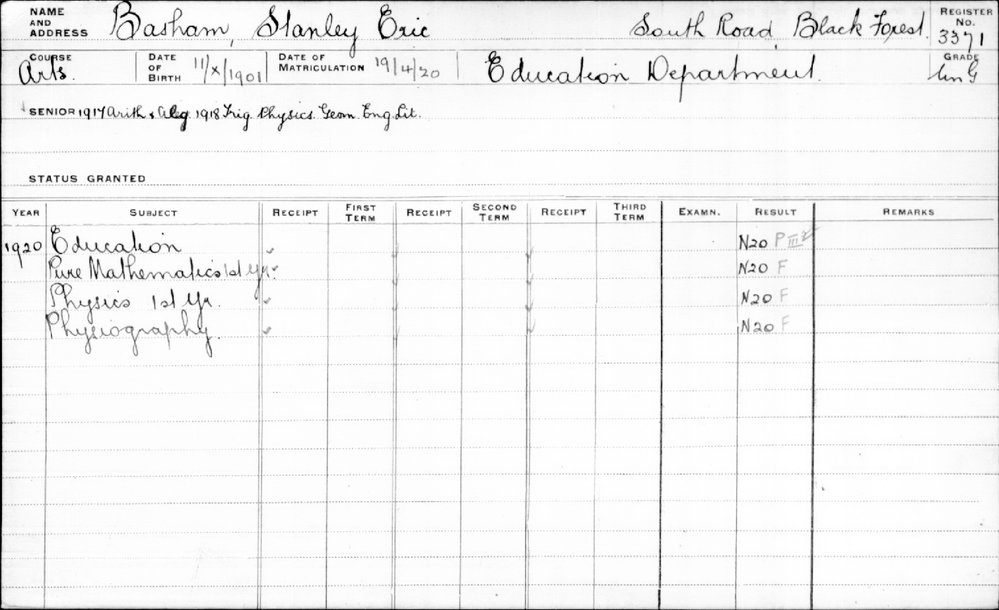 NAME AND ADDRESS Basham, Stanley Eric South Road, Black Forest. REGISTER No. 3371
COURSE Arts. DATE OF BIRTH 11/X/1901 DATE OF MATRICULATION 19/4/20 Education Department. GRADE Un G
SENIOR 1917 Arith & Alg. 1918 Trig. Physics. Geom. Eng. Lit.
STATUS GRANTED
YEAR SUBJECT RECEIPT FIRST TERM RECEIPT SECOND TERM RECEIPT THIRD TERM EXAMN. RESULT REMARKS
1920 Education N20 P III
Pure Mathematics 1st Yr. N20 F
Physics 1st Yr. N20 F
Physiography. N20 F